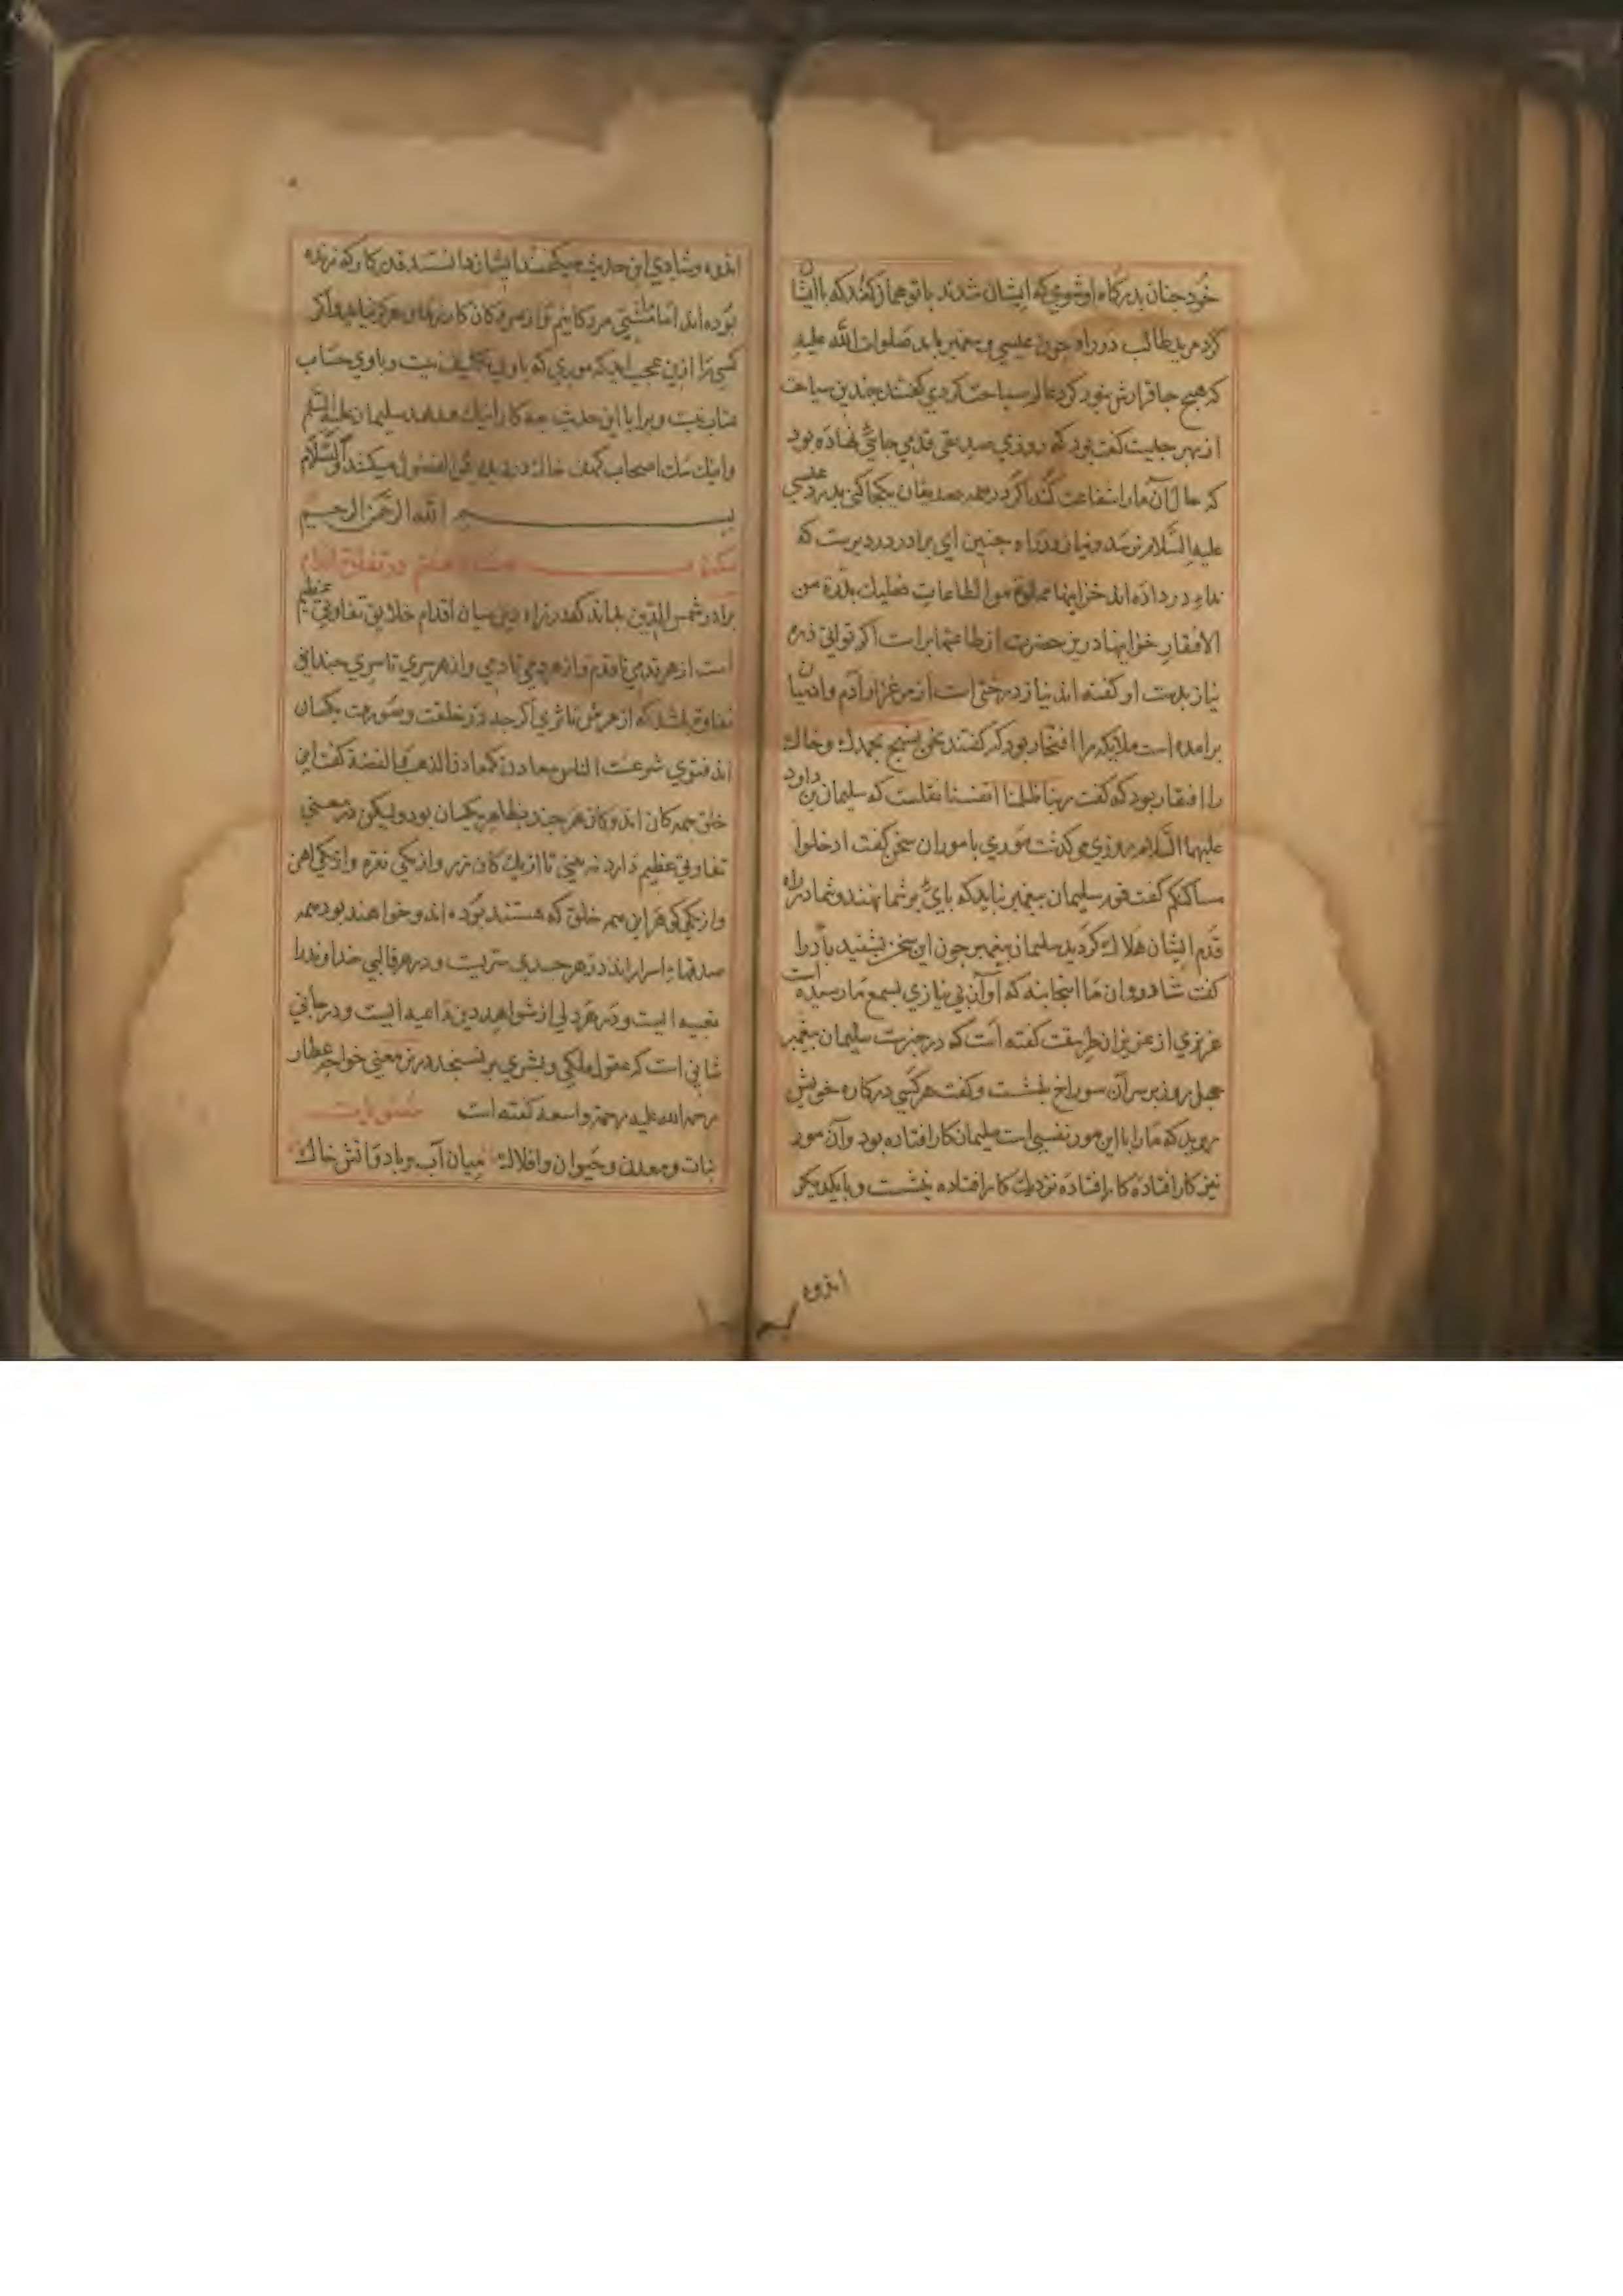 خود چنان بدرکاه او شوی که ایشان شدند با تو همان کند که با ایشان
کرد مرید طالب در راه چون عیسی پیغمبر باید صلوات الله علیه
که هیچ جا قرارش نبود کرد عالم سیاحت کردی کفتند چندین سیاحت
از بهر چیست کفت بود که روزی صدیقی قدمی جائی نهاده بود
که خاک آن ما را شفاعت کند اکر درد همه صدیقان یکجا کنی بدرد عیسی
علیه السلام نرسد و نیاز در راه چنین ای برادر دردیست که
نداء در داده اند خزاینها مملوة من الطاعات فعلیك بذرة من
الافتقار خزاینها درین حضرت از طاعتها پرست اکر توانی ذره
نیاز بدست او کفته اند نیاز درختی است از مرغزار آدم و آدمیان
برآمده است ملایکه را افتخار بود که کفتند نحن نسبح بحمدك و خاك
را افتقار بود که کفت ربنا ظلمنا انفسنا نقلست که سلیمان بن داود
علیهما السلام روزی می کذشت موری با موران سخن کفت ادخلوا
مساکنکم کفت قوم سلیمان پیغمبر نباید که پای بر شما نهند و شما در راه
قدم ایشان هلاك کردید سلیمان پیغمبر چون این سخن بشنید باد را
کفت شادروان ما اینجا بنه که آواز بی نیازی بسمع ما رسیده است
عزیزی از عزیزان طریقت کفته است که در حضرت سلیمان پیغمبر
چهل روز بر سر آن سوراخ بنشست و کفت هر کسی در کار خویش
روید که ما را با این مور نفسی است سلیمان کار افتاده بود و آن مور
نیز کار افتاده کار افتاده نزدیك کار افتاده بنشست و با یکدیکر
اندوه
اندوه و شادی این حدیث میکفتند ایشان دانستند قدر کار که زنده
بوده اند اما مشتی مردکانیم و از مردکان کار زندکان هرکز نیاید و اکر
کسی را ازین عجب اید که موری که با وی تکلیف نیست و با وی حساب
عتاب نیست ویرا با این حدیث چه کار اینك هدهد سلیمان علیه السلم
و اینك سك اصحاب کهف خاك در دیده این فضول میکنند والسلام
بسم الله الرحمن الرحیم
برادر شمس الدین بداند که در راه دین میان اقدام خلایق تفاوتی عظیم
است از هر قدمی تا قدم و از هر دمی تا دمی و از هر سری تا سری چندانی
تفاوت باشد که از عرش تا ثری اکر چه در خلقت و صورت یکسان
اند فتوی شرعست الناس معادن کمعادن الذهب والفضة کفت این
خلق همه کان اند و کان هر چند بظاهر یکسان بود ولیکن در معنی
تفاوتی عظیم دارد نه بینی تا از یك کان زر و از یکی نقره و از یکی اهن
و از یکی این همه خلق که هستند بوده اند و خواهند بود همه
صدفهاء اسرار اند در هر جسدی سریست و در هر قالبی خداوند را
تعبیه ایست و در هر دلی از شواهد دین داعیه ایست و در جانی
شانی است که عقول ملکی و بشری بر نسنجد درین معنی خواجه عطار
رحمة الله علیه رحمة واسعة کفته است مثنویات
نبات و معدن و حیوان و افلاك میان آب و باد و آتش خاك